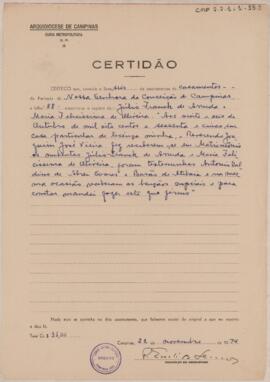 CMP 2.2.4.3-353
ARQUIDIOCESE DE CAMPINAS
CURIA METROPOLITANA
CERTIDÃO
CERTIFICO que, revendo o livro de assentamentos de casamentos
da Paróquia de Nossa Senhora da Conceição de Campinas
a folha 88 encontrei o registro de Júlio Franck de Arruda e
Maria Felicissima de Oliveira. "Aos vinte e seis de
Outubro de mil oito centos e sessenta e cinco em
casa particular de licença minha, o Reverendo Joa
quim José Vieira fez receberem-se em Matrimonio
os contratantes Júlio Franck de Arruda e Maria Feli
cissima de Oliveira, foram testemunhas Antonio
de Abreu e Barão de Atibaia e na mes
ma ocasião receberam as bençãos nupciais e para
constar mandei fazer este que firmo"
Nada mais se continha no dito assentamento, que fielmente extraí do original a que me reporto
e dou fé.
Campinas, 22 de novembro de 1974